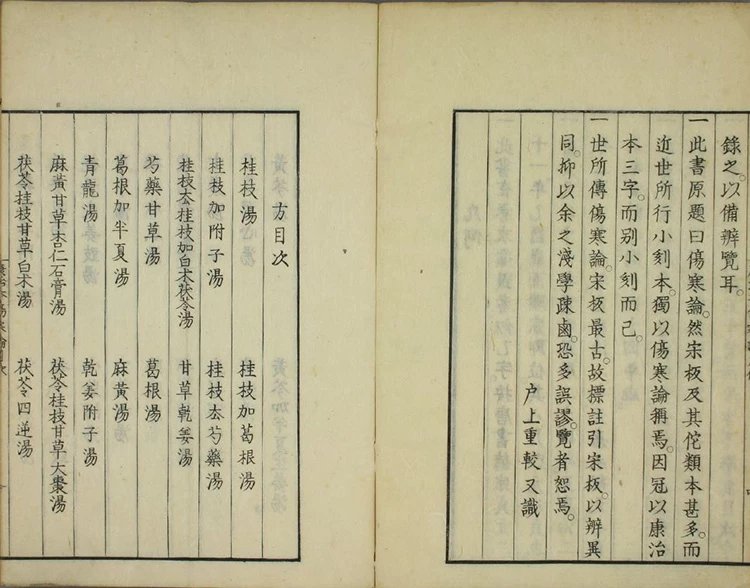 錄之。以備辨覽耳。
一此書原題曰傷寒論。然宋板及其佗類本甚多。而
近世所行小刻本。獨以傷寒論稱焉。因冠以康治
本三字。而别小刻而已。
一世所傳傷寒論。宋板最古。故標註引宋板。以辨異
同。抑以余之淺學疎鹵。恐多誤謬。覽者恕焉。
户上重較又識
方目次
桂枝湯
桂枝加葛根湯
桂枝加附子湯
桂枝去芍藥湯
桂枝去桂枝加白朮茯苓湯
甘草乾姜湯
芍藥甘草湯
葛根湯
葛根加半夏湯
麻黃湯
青龍湯
乾姜附子湯
麻黃甘草杏仁石膏湯
茯苓桂枝甘草大棗湯
茯苓桂枝甘草白朮湯
茯苓四逆湯